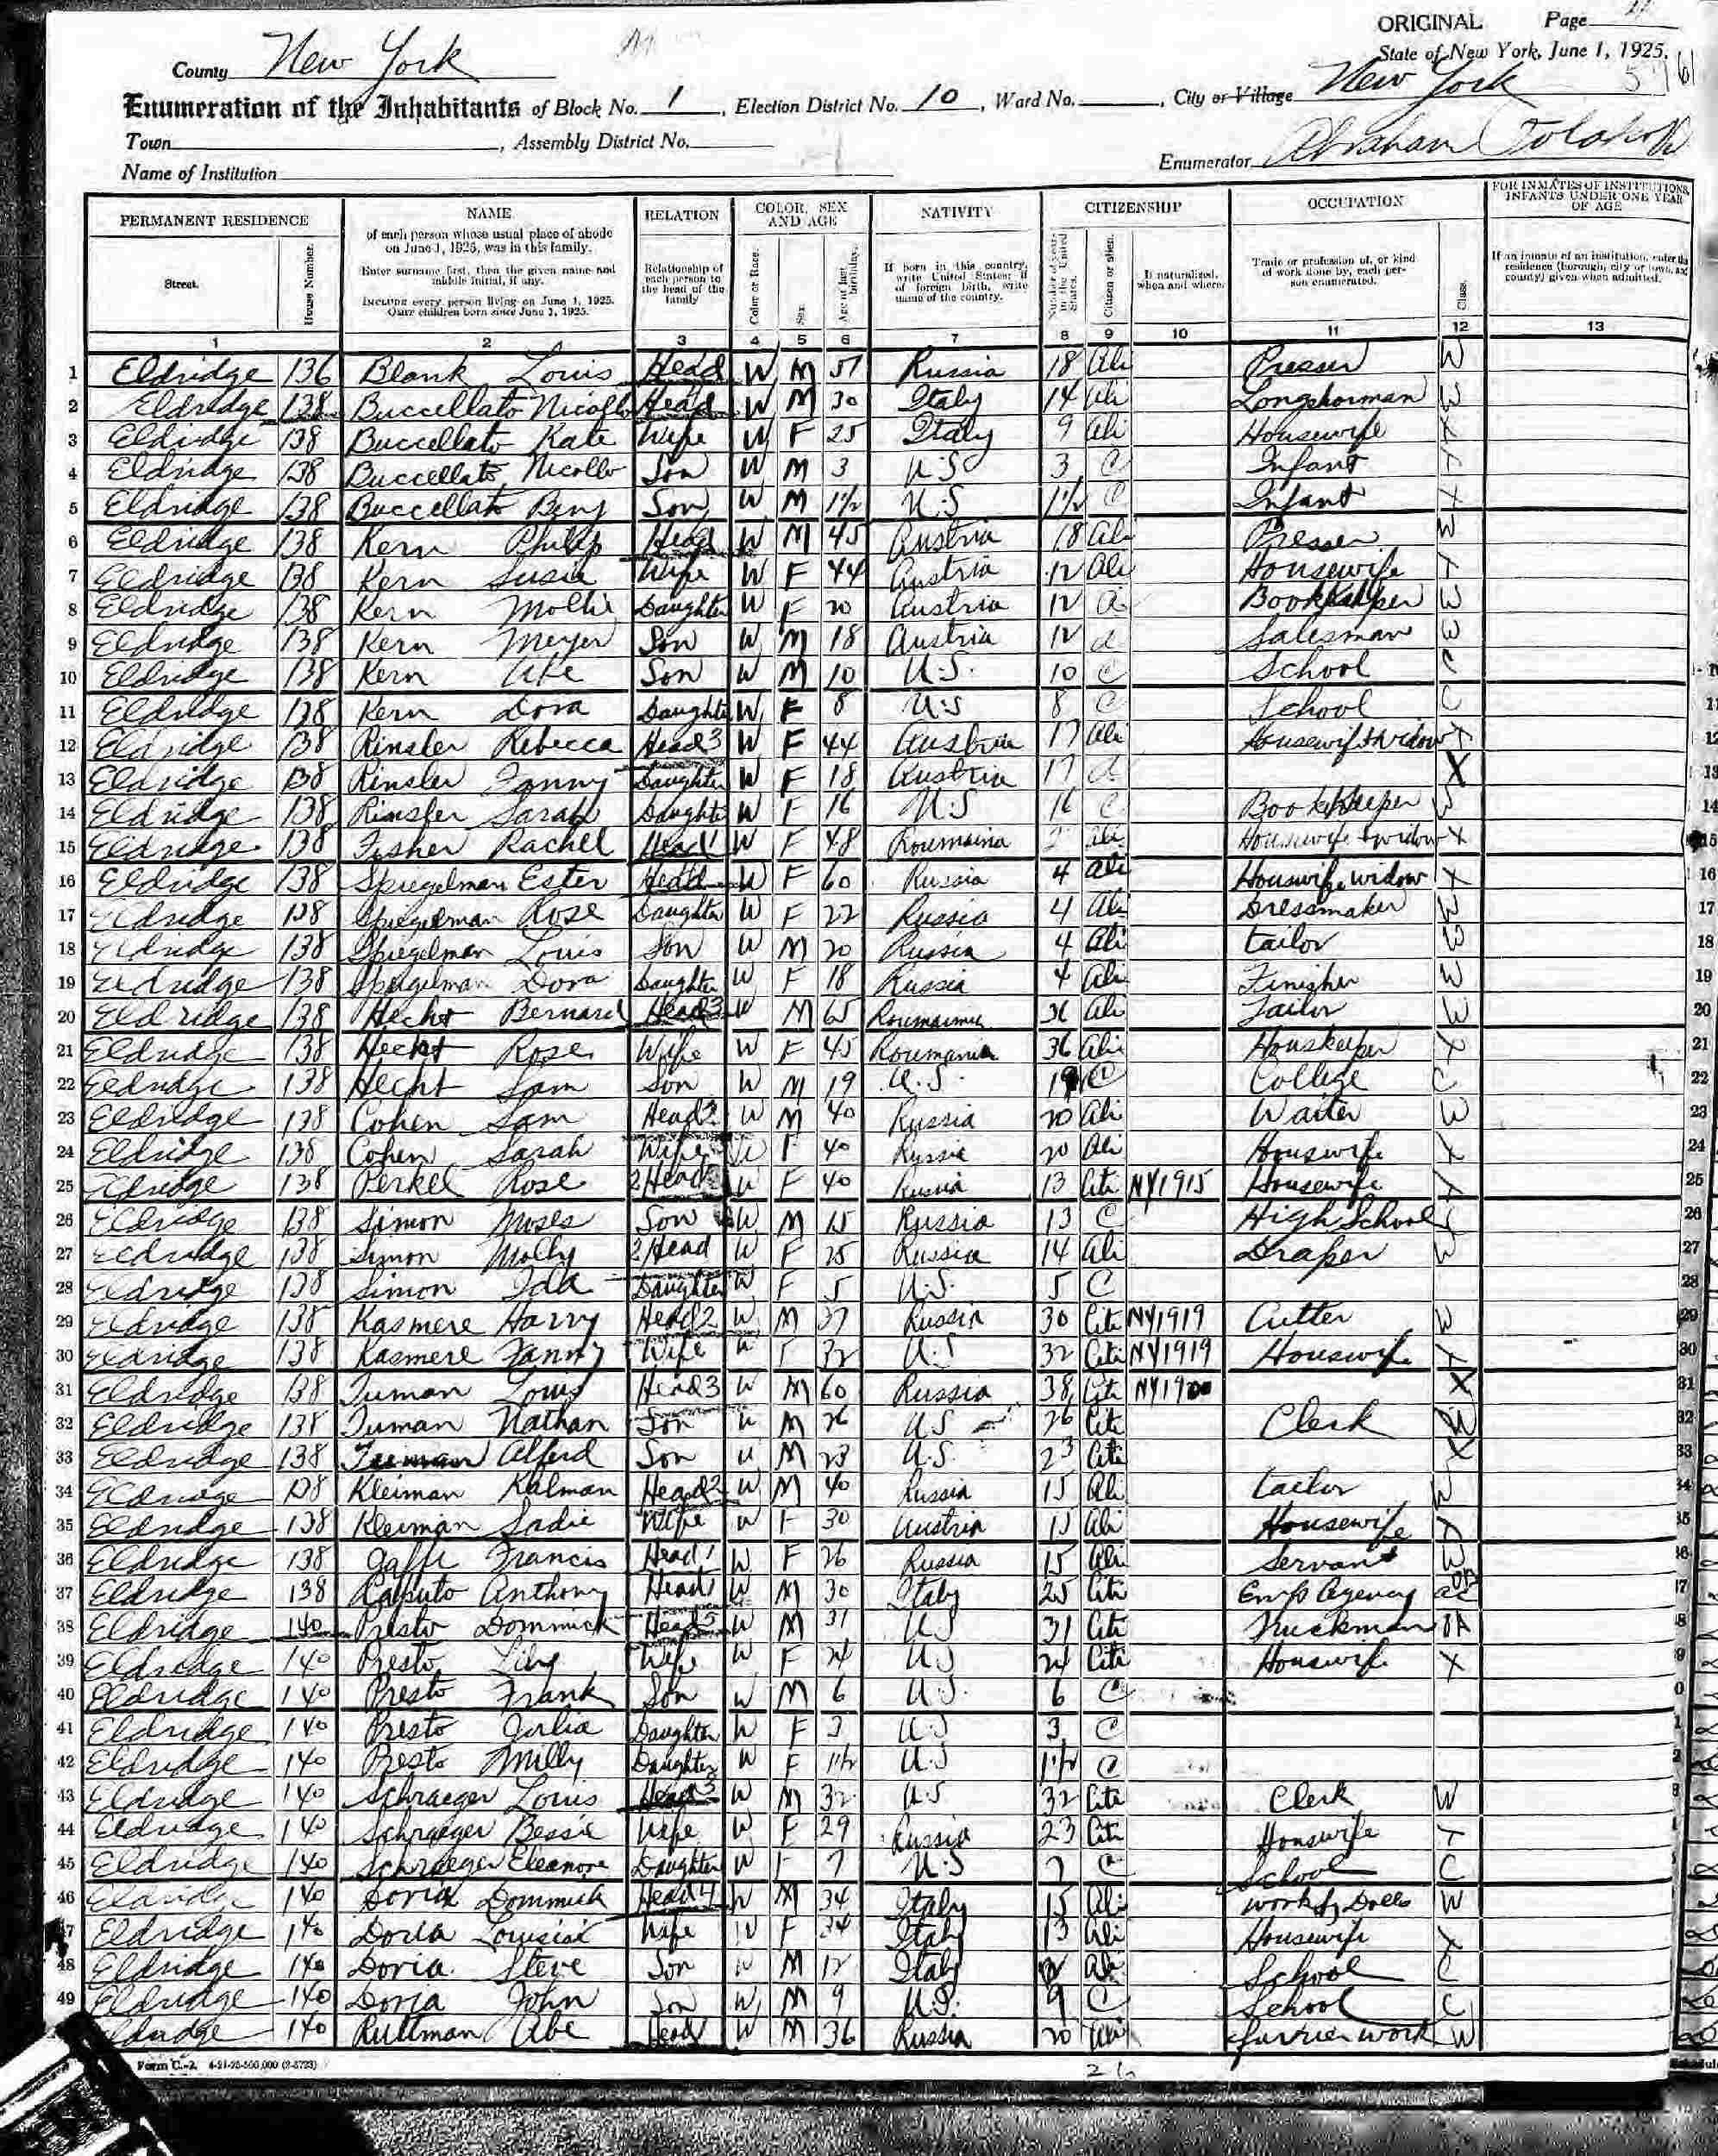 ORIGINAL Page
State of New York, June 1, 1925.
County New York
Enumeration of the Inhabitants of Block No. 1, Election District No. 10, Ward No. , City or Village New York
Town , Assembly District No.
Enumerator Abraham
Name of Institution
PERMANENT RESIDENCE NAME RELATION COLOR, SEX AND AGE NATIVITY CITIZENSHIP OCCUPATION FOR INMATES OF INSTITUTIONS, INFANTS UNDER ONE YEAR OF AGE
Street. House Number. of each person whose usual place of abode on June 1, 1925, was in this family. Enter surname first, then the given name and middle initial, if any. INCLUDE every person living on June 1, 1925. OMIT children born since June 1, 1925. Relationship of each person to the head of the family Color or Race. Sex Age at last birthday. If born in this country, write United States; if of foreign birth, write name of the country. Number of years in the United States. Citizen or alien. If naturalized, when and where. Trade or profession of, or kind of work done by, each person enumerated. Class. If an inmate of an institution, enter the residence (borough, city or town, and county) given when admitted.
1 2 3 4 5 6 7 8 9 10 11 12 13
1 Eldridge 136 Blank Louis Head W M 51 Russia 18 Ali Presser W
2 Eldridge 138 Buccellato Nicollo Head W M 30 Italy 14 Ali Longshorman W
3 Eldridge 138 Buccellato Kate Wife W F 25 Italy 9 Ali Housewife X
4 Eldridge 138 Buccellato Nicollo Son W M 3 U.S 3 C Infant X
5 Eldridge 138 Buccellato Benj Son W M 1½ U.S 1½ C Infant X
6 Eldridge 138 Kern Philip Head W M 45 Austria 18 Ali Presser W
7 Eldridge 138 Kern Susie Wife W F 44 Austria 12 Ali Housewife X
8 Eldridge 138 Kern Mollie Daughter W F 20 Austria 12 a Bookkeeper W
9 Eldridge 138 Kern Meyer Son W M 18 Austria 12 a Salesman W
10 Eldridge 138 Kern Abe Son W M 10 U.S. 10 C School C
11 Eldridge 138 Kern Dora Daughter W F 8 U.S 8 C School C
12 Eldridge 138 Rinsler Rebecca Head 3 W F 44 Austria 17 Ali Housewife + widow X
13 Eldridge 138 Rinsler Fanny Daughter W F 18 Austria 17 a X
14 Eldridge 138 Rinsler Sarah Daughter W F 16 U.S 16 C Bookkeeper W
15 Eldridge 138 Fisher Rachel Head 1 W F 48 Roumaina Ali Housewife + widow X
16 Eldridge 138 Spiegelman Ester Head W F 60 Russia 4 Ali Houswife widow X
17 Eldridge 138 Spiegelman Rose Daughter W F 22 Russia 4 Ali Dressmaker W
18 Eldridge 138 Spiegelman Louis Son W M 20 Russia 4 Ali tailor W
19 Eldridge 138 Spiegelman Dora Daughter W F 18 Russia 4 Ali Finisher W
20 Eldridge 138 Hecht Bernard Head 3 W M 65 36 Ali Tailor W
21 Eldridge 138 Hecht Rose Wife W F 45 Roumania 36 Ali Houskeeper X
22 Eldridge 138 Hecht Sam Son W M 19 U.S. 19 C College C
23 Eldridge 138 Cohen Sam Head 2 W M 40 Russia 20 Ali Waiter W
24 Eldridge 138 Cohen Sarah Wife W F 40 Russia 20 Ali Houswife X
25 Eldridge 138 Perkel Rose 2 Head W F 40 Russia 13 Citi NY 1915 Housewife X
26 Eldridge 138 Simon Moses Son W M 15 Russia 13 C High School C
27 Eldridge 138 Simon Molly 2 Head W F 25 Russia 14 Ali Draper W
28 Eldridge 138 Simon Ida Daughter W F 5 U.S. 5 C
29 Eldridge 138 Kasmere Harry Head 2 W M 37 Russia 30 Citi NY 1919 Cutter W
30 Eldridge 138 Kasmere Fanny Wife W F 32 U.S 32 Citi NY 1919 Houswife X
31 Eldridge 138 Tuman Louis Head 3 W M 60 Russia 38 Citi NY 1900 X
32 Eldridge 138 Tuman Nathan Son W M 26 U S 26 Citi Clerk W
33 Eldridge 138 Alferd Son W M 23 U.S. 23 Citi X
34 Eldridge 138 Kleiman Kalman Head 2 W M 40 Russia 15 Ali tailor W
35 Eldridge 138 Kleiman Sadie Wife W F 30 Austria 15 Ali Housewife X
36 Eldridge 138 Francis Head 1 W F 26 Russia 15 Ali Servant W
37 Eldridge 138 Caputo Anthony Head 1 W M 30 Italy 25 Citi Emp Agency
38 Eldridge 140 Presto Dommick Head 5 W M 31 U S 31 Citi Truckman OA
39 Eldridge 140 Presto Lily Wife W F 24 U S 24 Citi Houswife X
40 Eldridge 140 Presto Frank Son W M 6 U.S. 6 C
41 Eldridge 140 Presto Julia Daughter W F 3 U.S 3 C
42 Eldridge 140 Presto Milly Daughter W F 1½ U.S 1½ C
43 Eldridge 140 Schraeger Louis Head 3 W M 32 U.S 32 Citi Clerk W
44 Eldridge 140 Schraeger Bessie Wife W F 29 Russia 23 Citi Houswife X
45 Eldridge 140 Schraeger Eleanore Daughter W F 7 U.S 7 C School C
46 Eldridge 140 Doria Dommick Head 4 W M 34 Italy 15 Ali work of Dolls W
47 Eldridge 140 Doria Louisia Wife W F 34 Italy 13 Ali Housewife X
48 Eldridge 140 Doria Steve Son W M 12 Italy 12 Ali School C
49 Eldridge 140 Doria John Son W M 9 U.S. 9 C School C
Eldridge 140 Rullman Abe Head W M 36 Russia 20 Ali furrier work W
Form C-2. 4-21-25-500,000 (2-5723)